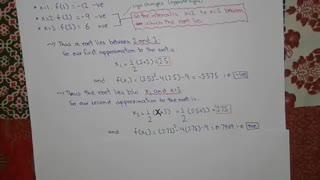 • x=1: f(1) = -12 -ve
• x=2: f(2) = -9 -ve
• x=3: f(3) = 6 +ve
Sign changes (opposite signs)
So the interval is x=2 to x=3 between
on which the root lies.
→ Thus a root lies between 2 and 3.
So our first approximation to the root is
x₁ = 1/2 (2+3) = 2.5
and f(x₁) = (2.5)³ - 4(2.5) - 9 = -3.375 i.e. -ve
→ Thus the root lies b/w x₁ and x=3
So our second approximation to the root is
x₂ = 1/2 (x₁+3) = 1/2 (2.5+3) = 2.75
and f(x₂) = (2.75)³ - 4(2.75) - 9 = 0.7969 i.e. +ve